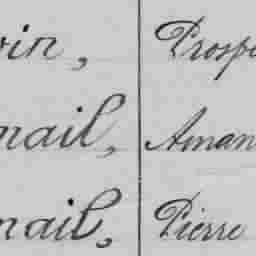 vin, Prospe
mail, Aman
mail, Pierre